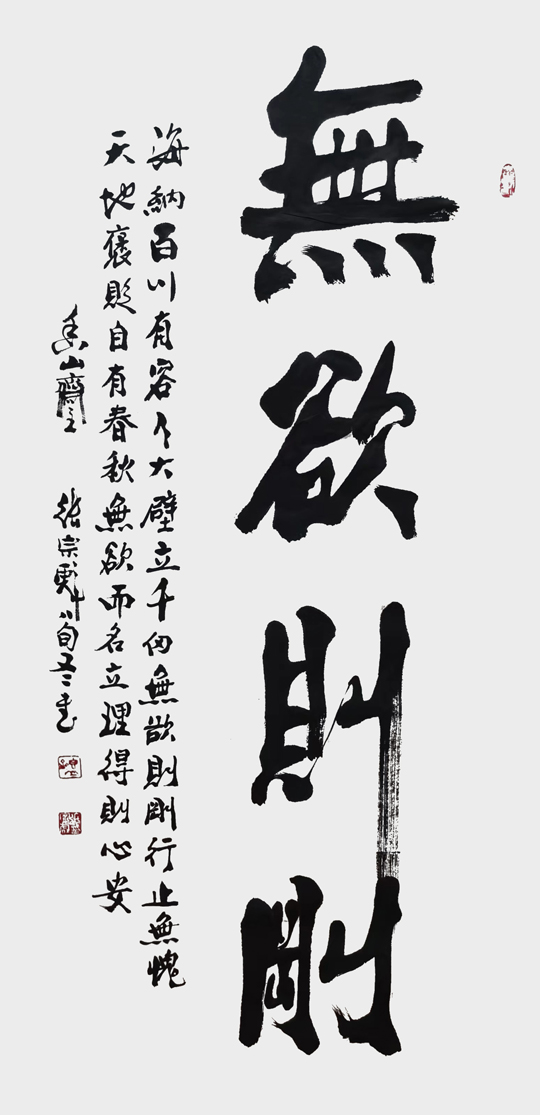 無欲則剛
海納百川有容乃大壁立千仞無欲則剛行止無愧
天地褒貶自有春秋無欲而名立理得則心安
山齋主 張宗 八旬又二書